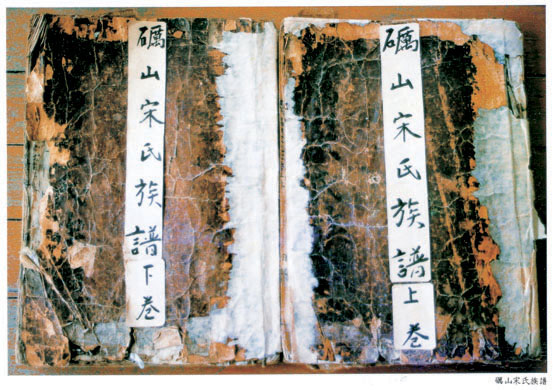 礪山宋氏族譜上卷
礪山宋氏族譜下卷
礪山宋氏族譜